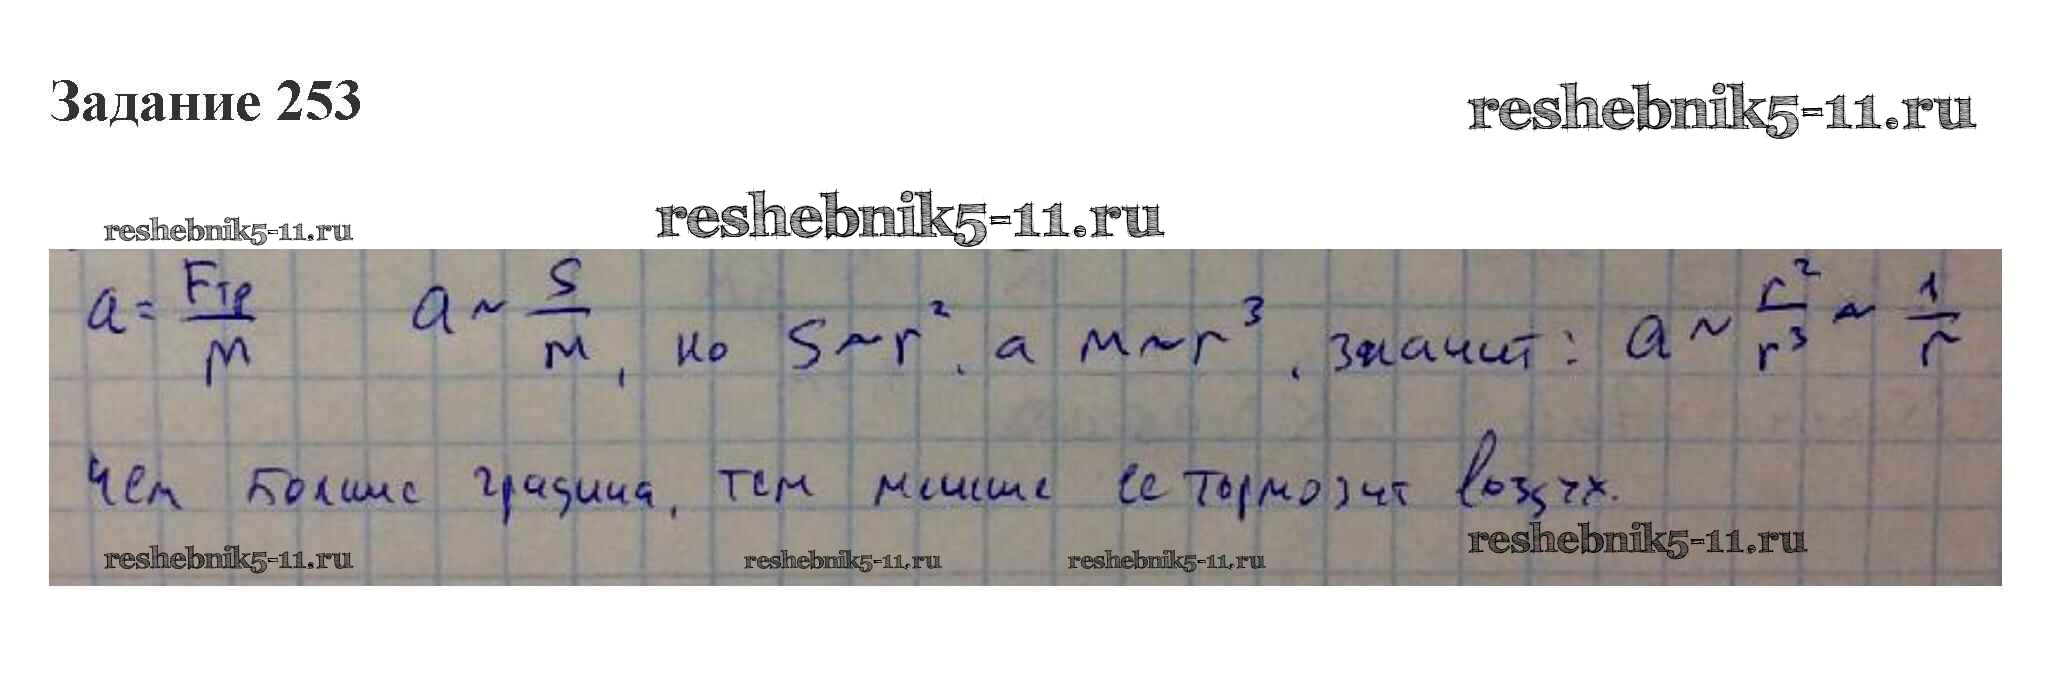 Задание 253
reshebnik5-11.ru
reshebnik5-11.ru
reshebnik5-11.ru
a = Fтр/м a ~ S/м, но S ~ r², а м ~ r³, значит: a ~ r²/r³ ~ 1/r
Чем больше градина, тем меньше ее тормозит воздух.
reshebnik5-11.ru
reshebnik5-11.ru
reshebnik5-11.ru
reshebnik5-11.ru